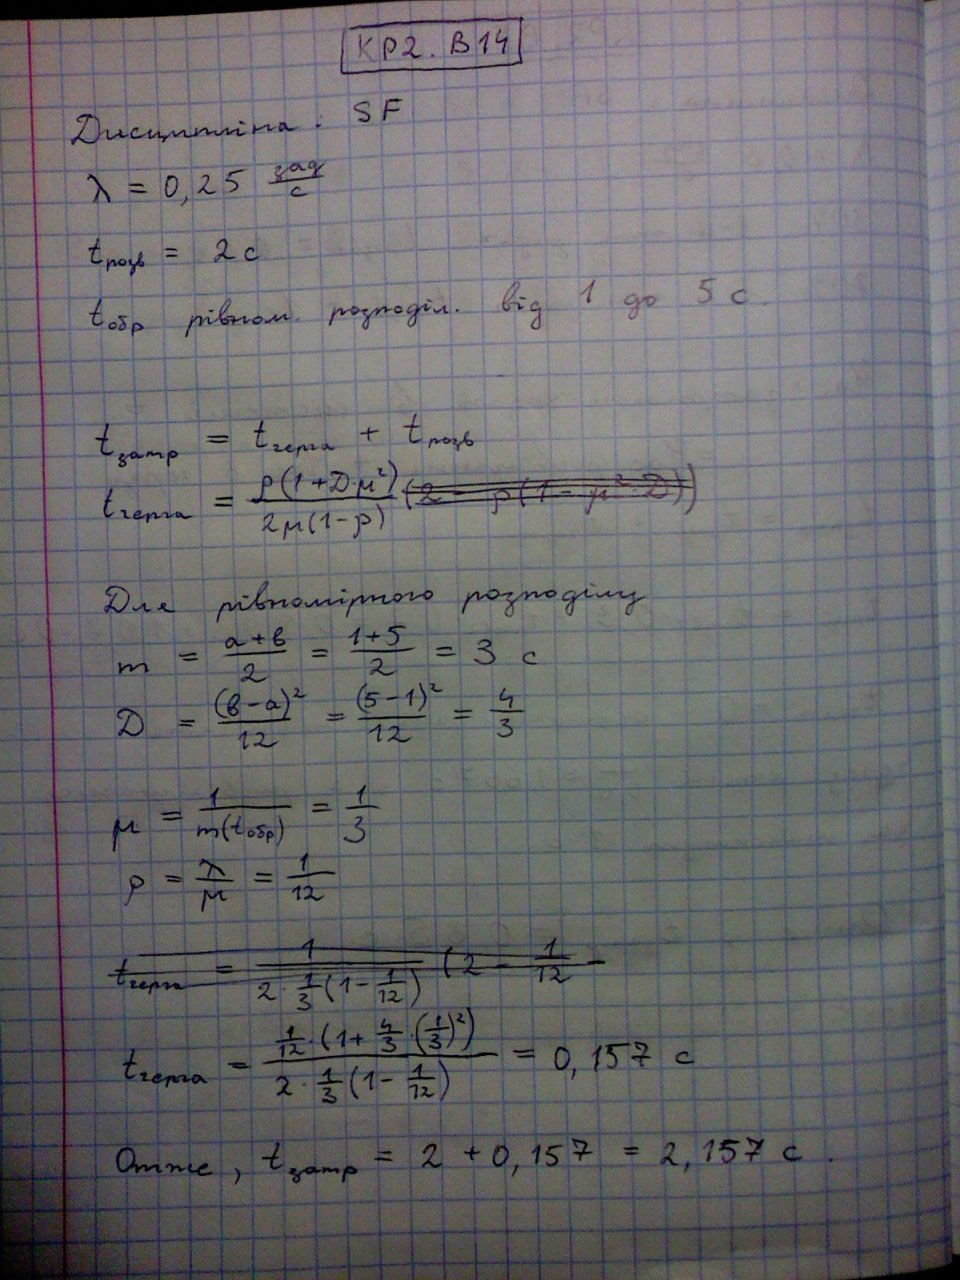 КР2. В14
Дисципліна: SF
λ = 0,25 зад/с
tрозв = 2 с
tобр рівном. розподіл. від 1 до 5 с.
tзатр = tчерга + tрозв
tчерга = ρ(1+Д·μ²)/2μ(1-ρ) (2 - ρ(1 - μ²·Д))
Для рівномірного розподілу
m = a+b/2 = 1+5/2 = 3 с
Д = (b-a)²/12 = (5-1)²/12 = 4/3
μ = 1/m(tобр) = 1/3
ρ = λ/μ = 1/12
tчерга = 1/2·1/3(1-1/12) (2 - 1/12
tчерга = 1/12·(1+4/3·(1/3)²)/2·1/3(1-1/12) = 0,157 с
Отже, tзатр = 2 + 0,157 = 2,157 с.